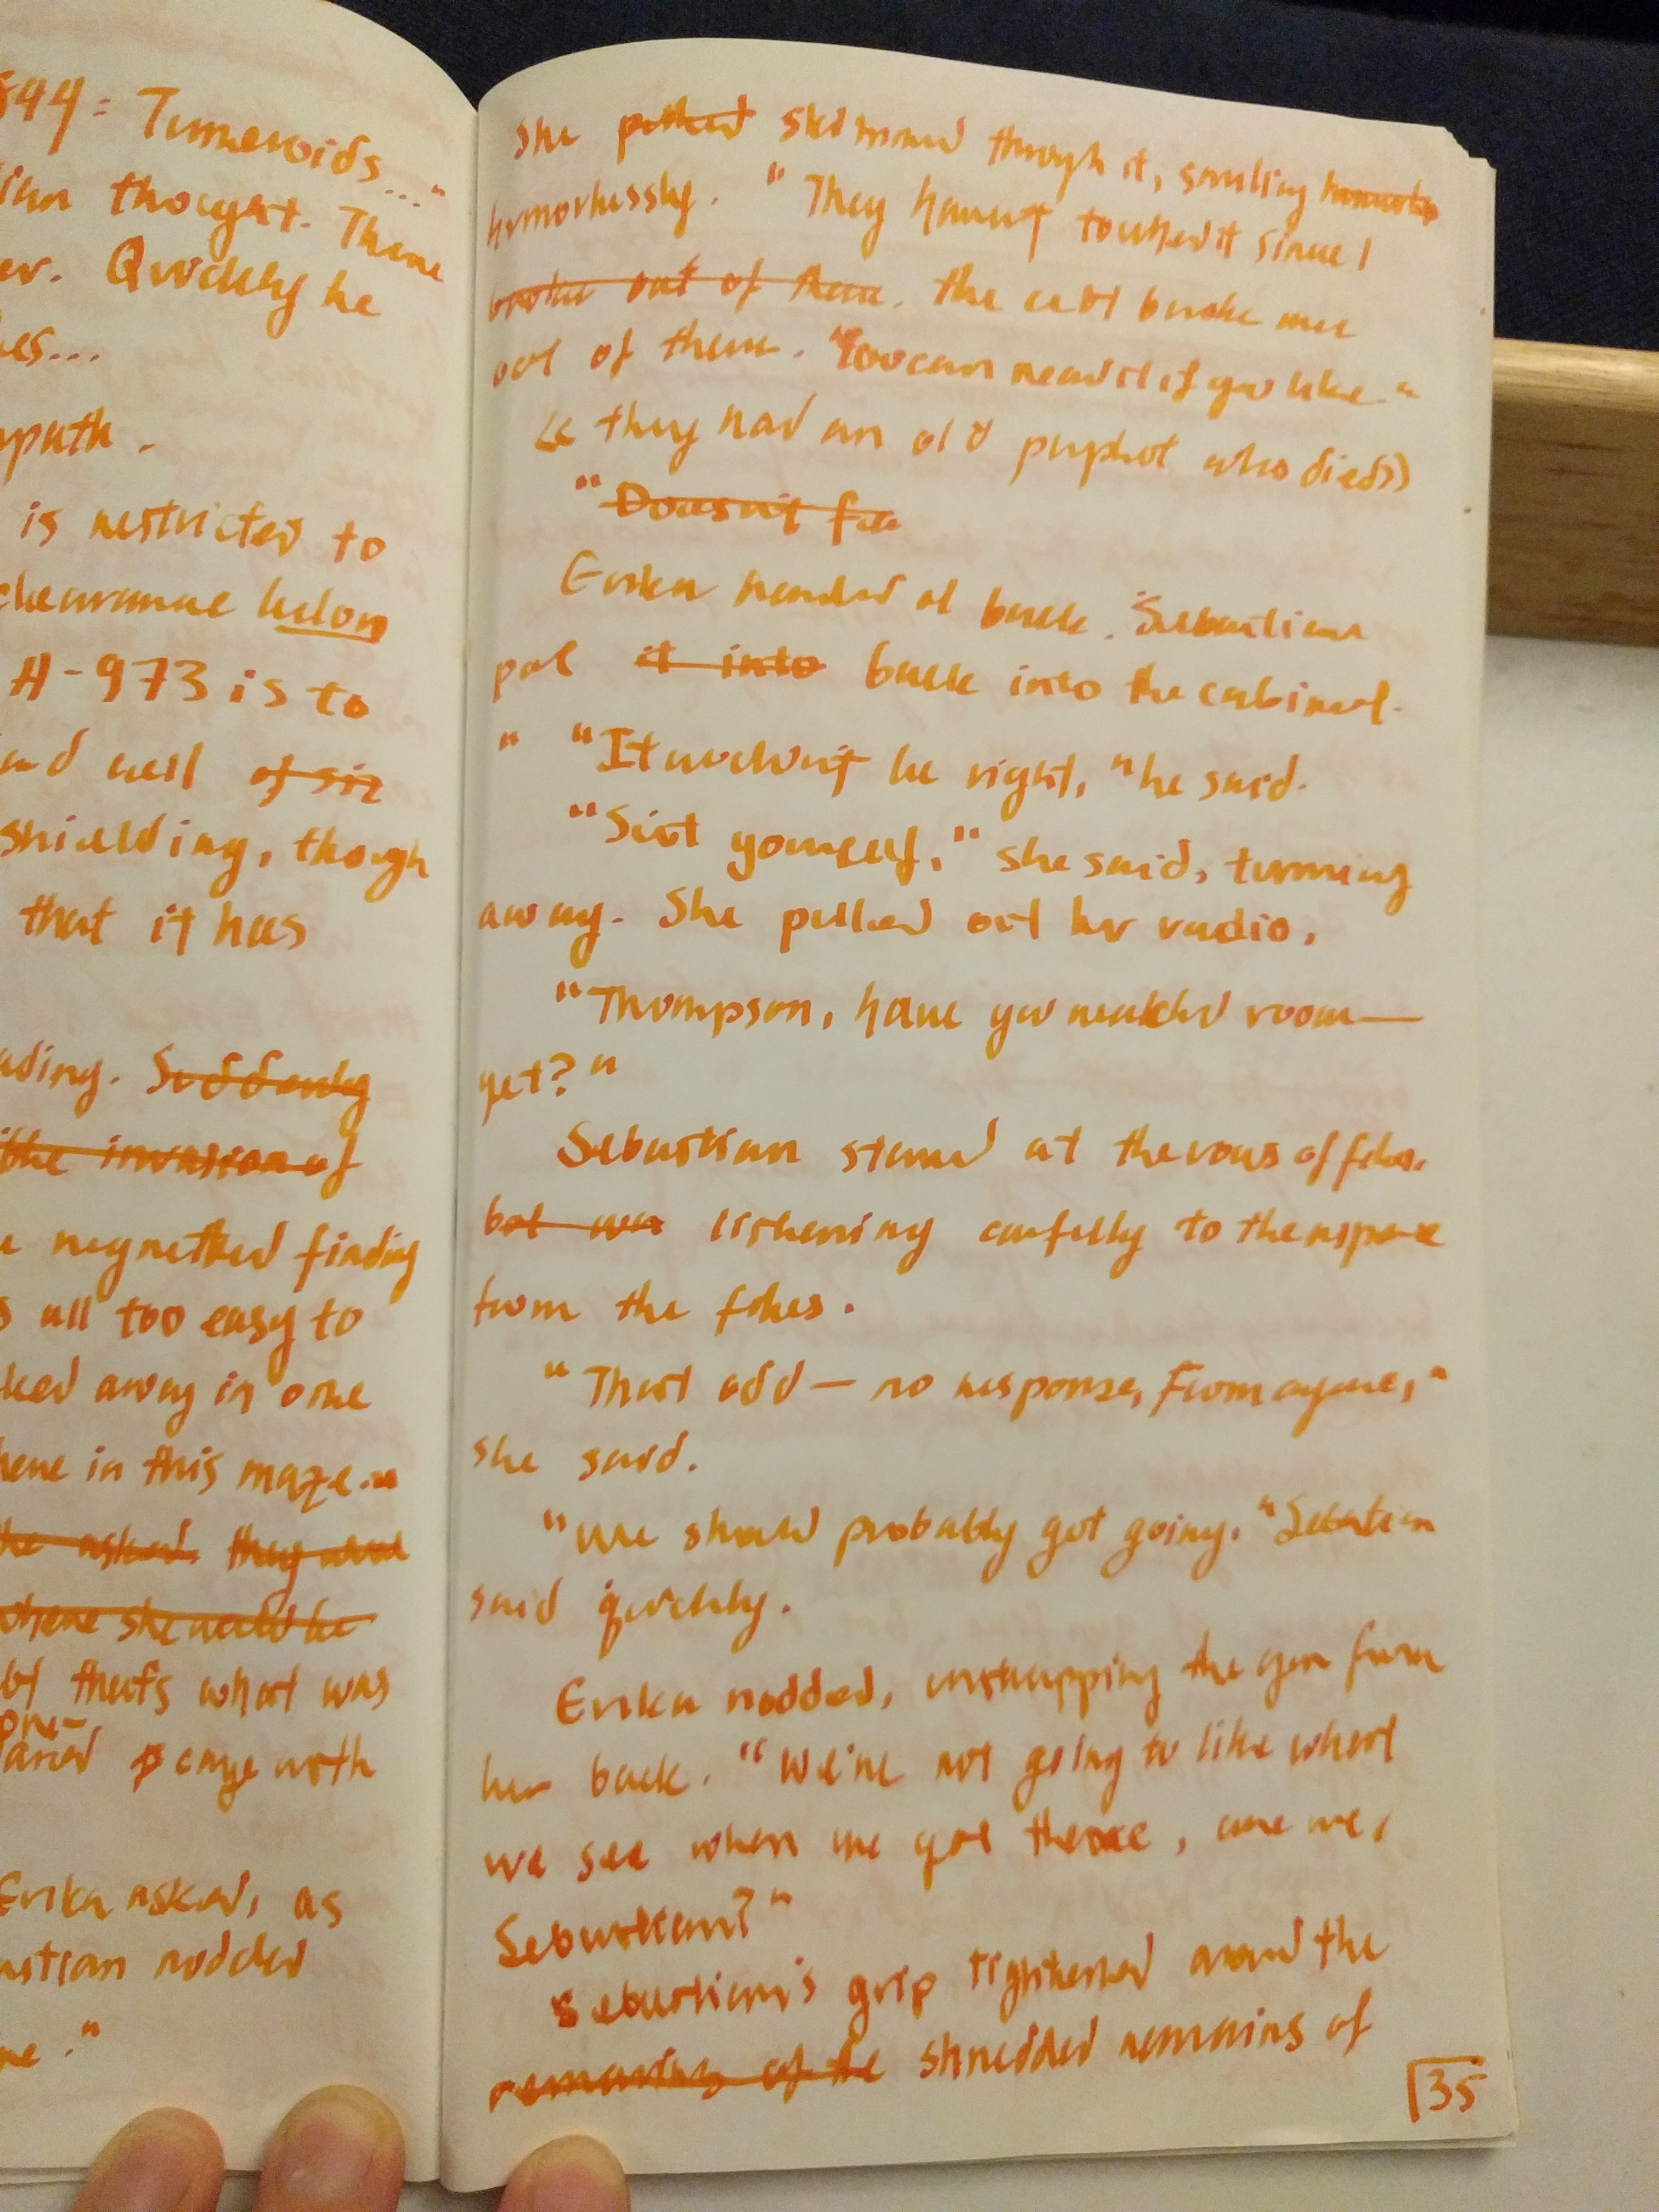 544 = Tumeroids..."
ian thought. There
er. Quickly he
es...
mpath.
is restricted to
clearance below
A-973 is to
and well of six
shielding, though
that it has
ading. Suddenly
the invasion of
regretted finding
s all too easy to
ked away in one
here in this maze.
he asked. they
where she would be
bt that's what was
one-
Erika asked, as
astian nodded
me."
She pulled skimmed through it, smiling
humorlessly. "They haven't touched it since I
broke out of there. the cest broke me
out of there. "You can read it if you like."
(( they had an old prophet who died))
"Doesn't
Erika handed it back. Sebastian
put it into back into the cabinet.
" "It wouldn't be right," he said.
"Suit yourself," she said, turning
away. She pulled out her radio.
"Thompson, have you reached room—
yet?"
Sebastian stared at the rows of files.
but was listening carfully to the response
from the files.
"That odd — no response, From anyone,"
she said.
"We should probably get going." Sebastian
said quickly.
Erika nodded, unstrapping the gun from
her back. "We're not going to like what
we see when we get there, are we,
Sebastian?"
Sebastian's grip tightened around the
remaining of the shredded remains of
35